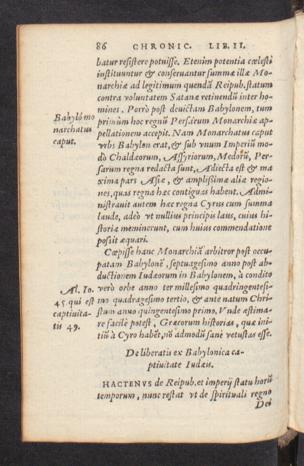 86 CHRONIC. LIB. II.
batur resistere potuisse. Etenim potentia cœlesti
instituuntur & conseruantur summæ illæ Mo-
narchiæ ad legitimum quendā Reipub. statum
contra voluntatem Satanæ retinendū inter ho-
mines. Porrò post deuictam Babylonem, tum
primùm hoc regnū Persarum Monarchiæ ap-
pellationem accepit. Nam Monarchatus caput
vrbs Babylon erat, & sub vnum Imperiū mo-
dò Chaldæorum, Assyriorum, Medorū, Per-
sarum regna redacta sunt, Adiecta est & ma
xima pars Asiæ, & amplissimæ aliæ regio-
nes, quas regna hæc contiguas habent. Admi-
nistrauit autem hæc regna Cyrus cum summa
laude, adeò vt nullius principis laus, cuius hi-
storiæ meminerunt, cum huius commendatione
possit æquari.
Babylō mo
narchatus
caput.
Cœpisse hanc Monarchiā arbitror post occu-
patam Babylonē, septuagesimo anno post ab-
ductionem Iudæorum in Babylonem, à condito
verò orbe anno ter millesimo quadringentesi-
mo quadragesimo tertio, & ante natum Chri-
stum anno quingentesimo primo, Vnde æstima-
re facilè potest, Græcorum historias, quæ ini-
tiū à Cyro habēt, nō admodū sanè vetustas esse.
Al. Io.
45. qui est
captiuita-
tis 49.
De liberatis ex Babylonica ca-
ptiuitate Iudæis.
HACTENVS de Reipub. et imperij statu horū
temporum, nunc restat vt de spirituali regno
Dei